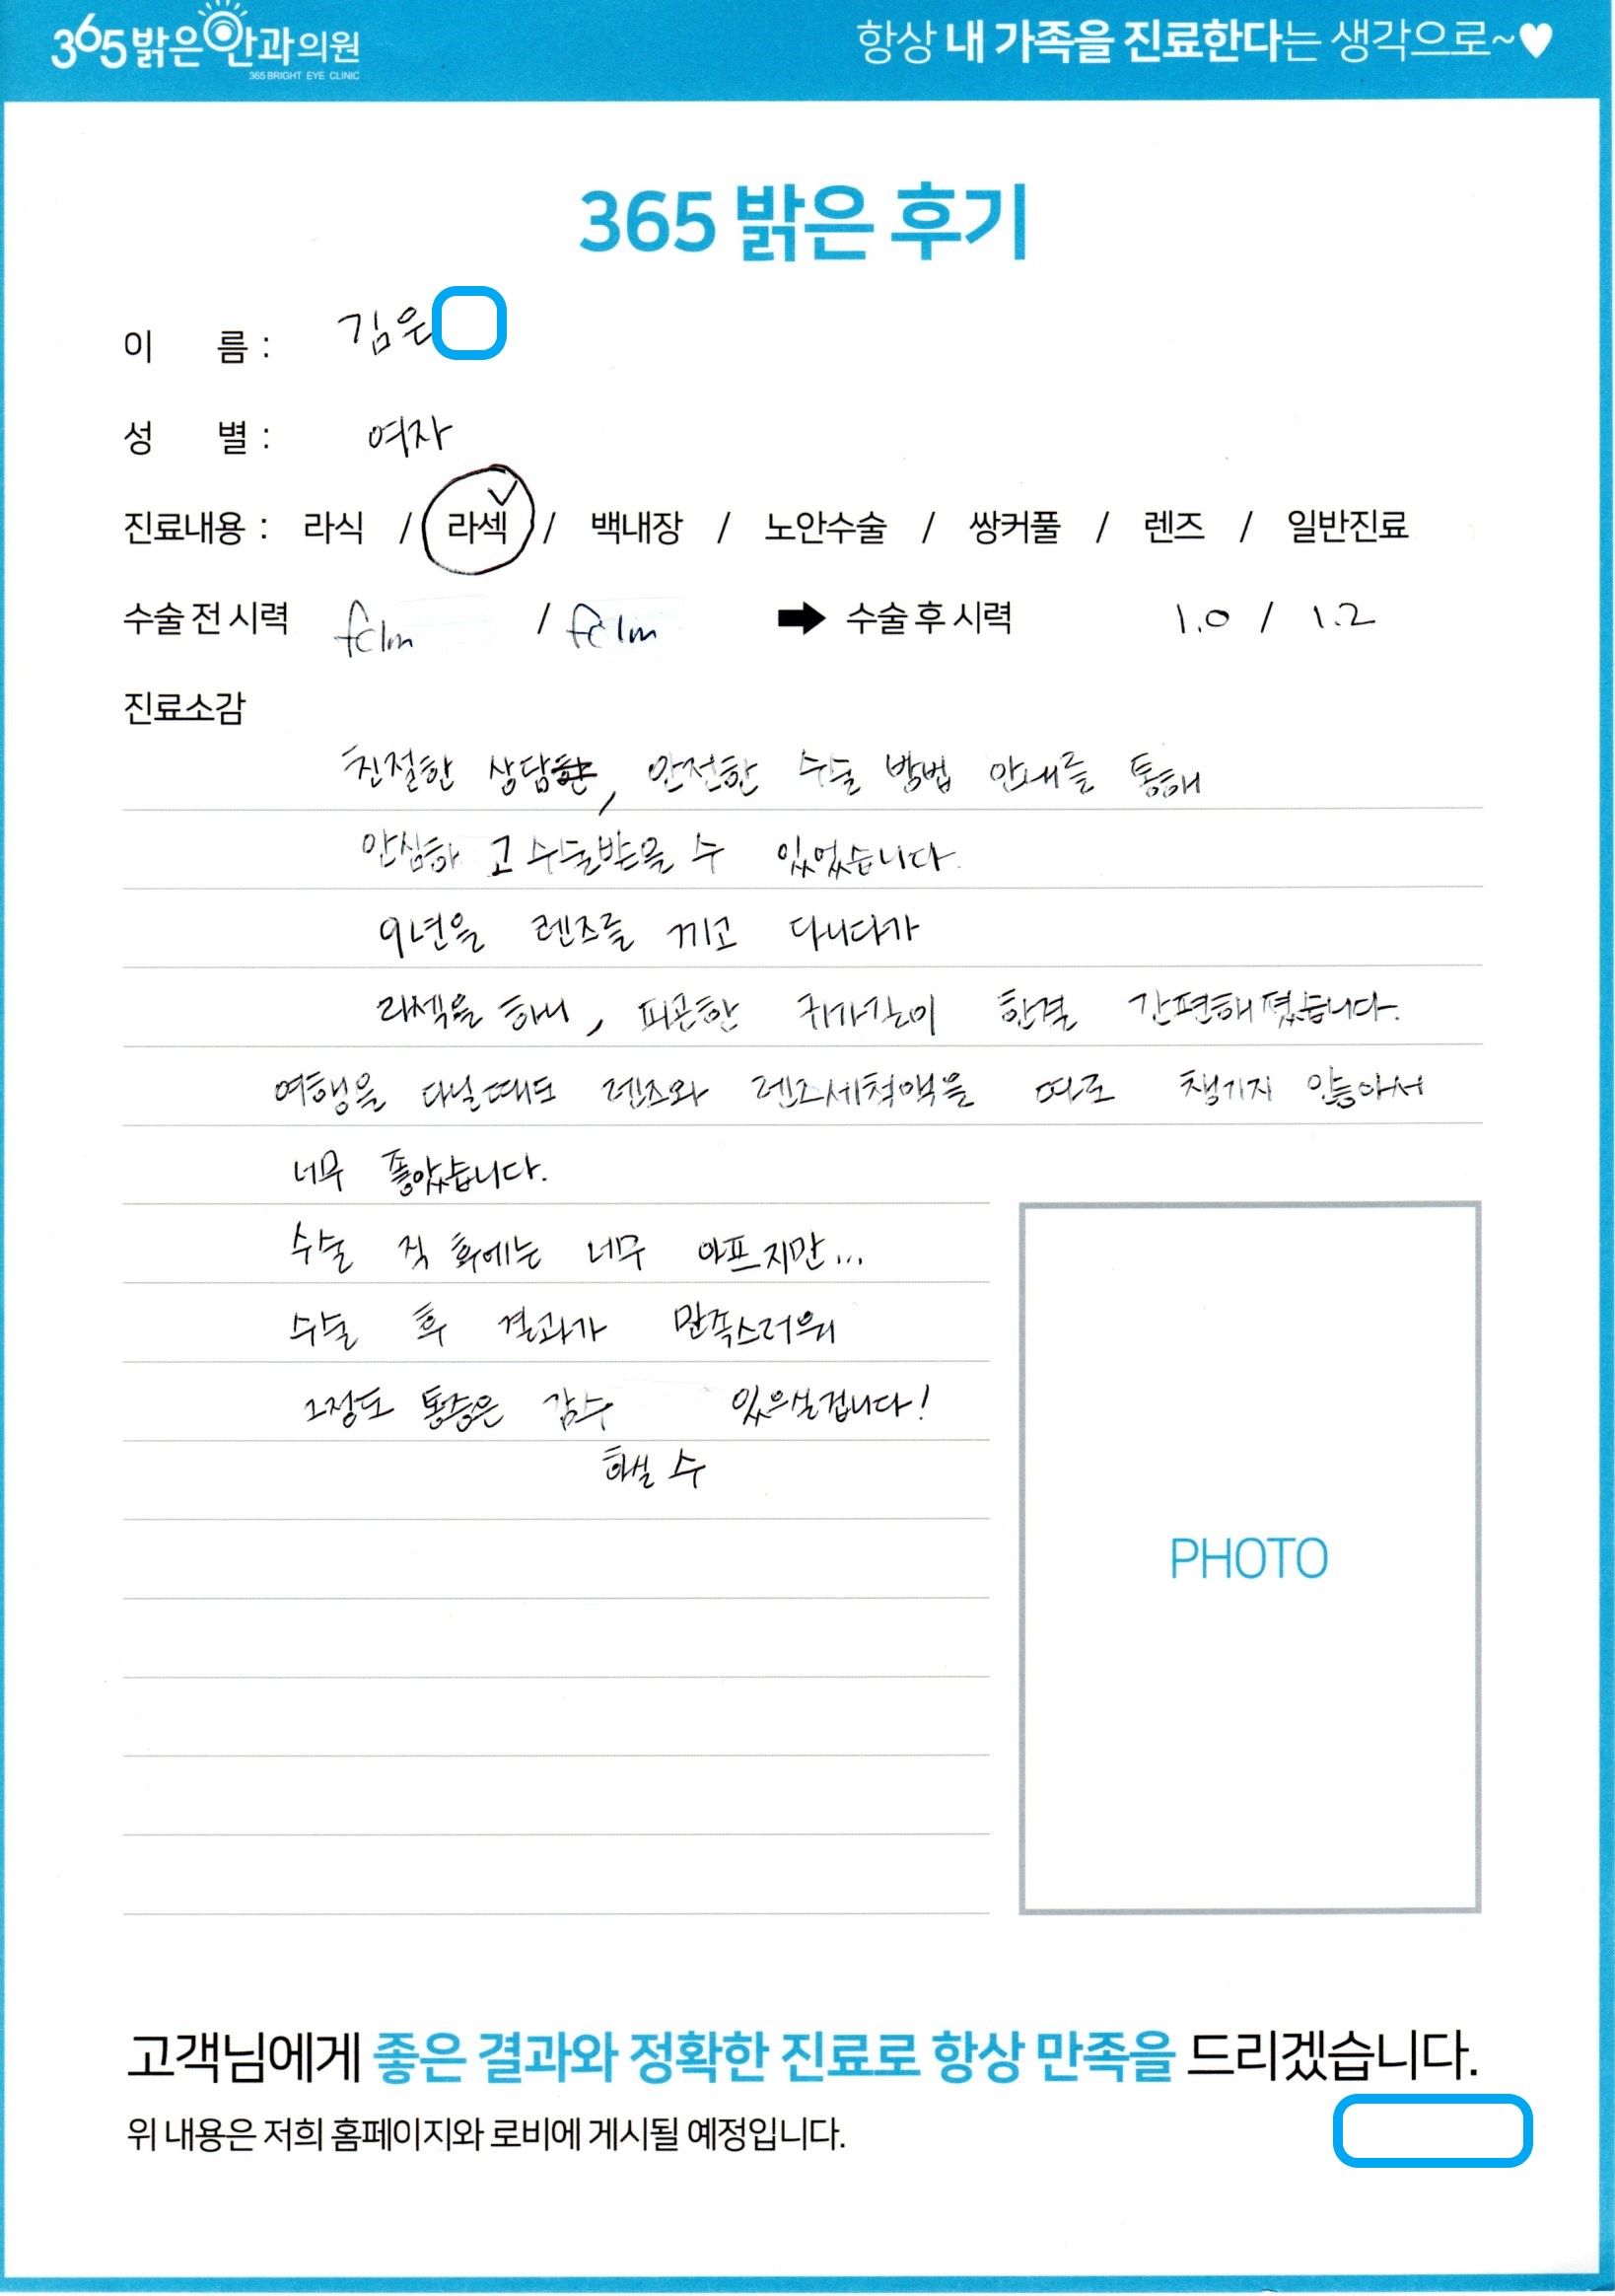 365밝은안과의원
365 BRIGHT EYE CLINIC
항상 내 가족을 진료한다는 생각으로~♥
365 밝은 후기
이 름 : 김은
성 별 : 여자
진료내용 : 라식 / 라섹 / 백내장 / 노안수술 / 쌍커풀 / 렌즈 / 일반진료
수술 전 시력 fc1m / fc1m ➡ 수술 후 시력 1.0 / 1.2
진료소감
친절한 상담, 안전한 수술 방법 안내를 통해
안심하고 수술받을 수 있었습니다.
9년을 렌즈를 끼고 다니다가
라섹을 하니, 피곤한 귀가길이 한결 간편해졌습니다.
여행을 다닐때도 렌즈와 렌즈세척액을 따로 챙기지 않아서
너무 좋았습니다.
수술 직 후에는 너무 아프지만...
수술 후 결과가 만족스러워
그정도 통증은 감수 있으실겁니다!
하실 수
PHOTO
고객님에게 좋은 결과와 정확한 진료로 항상 만족을 드리겠습니다.
위 내용은 저희 홈페이지와 로비에 게시될 예정입니다.